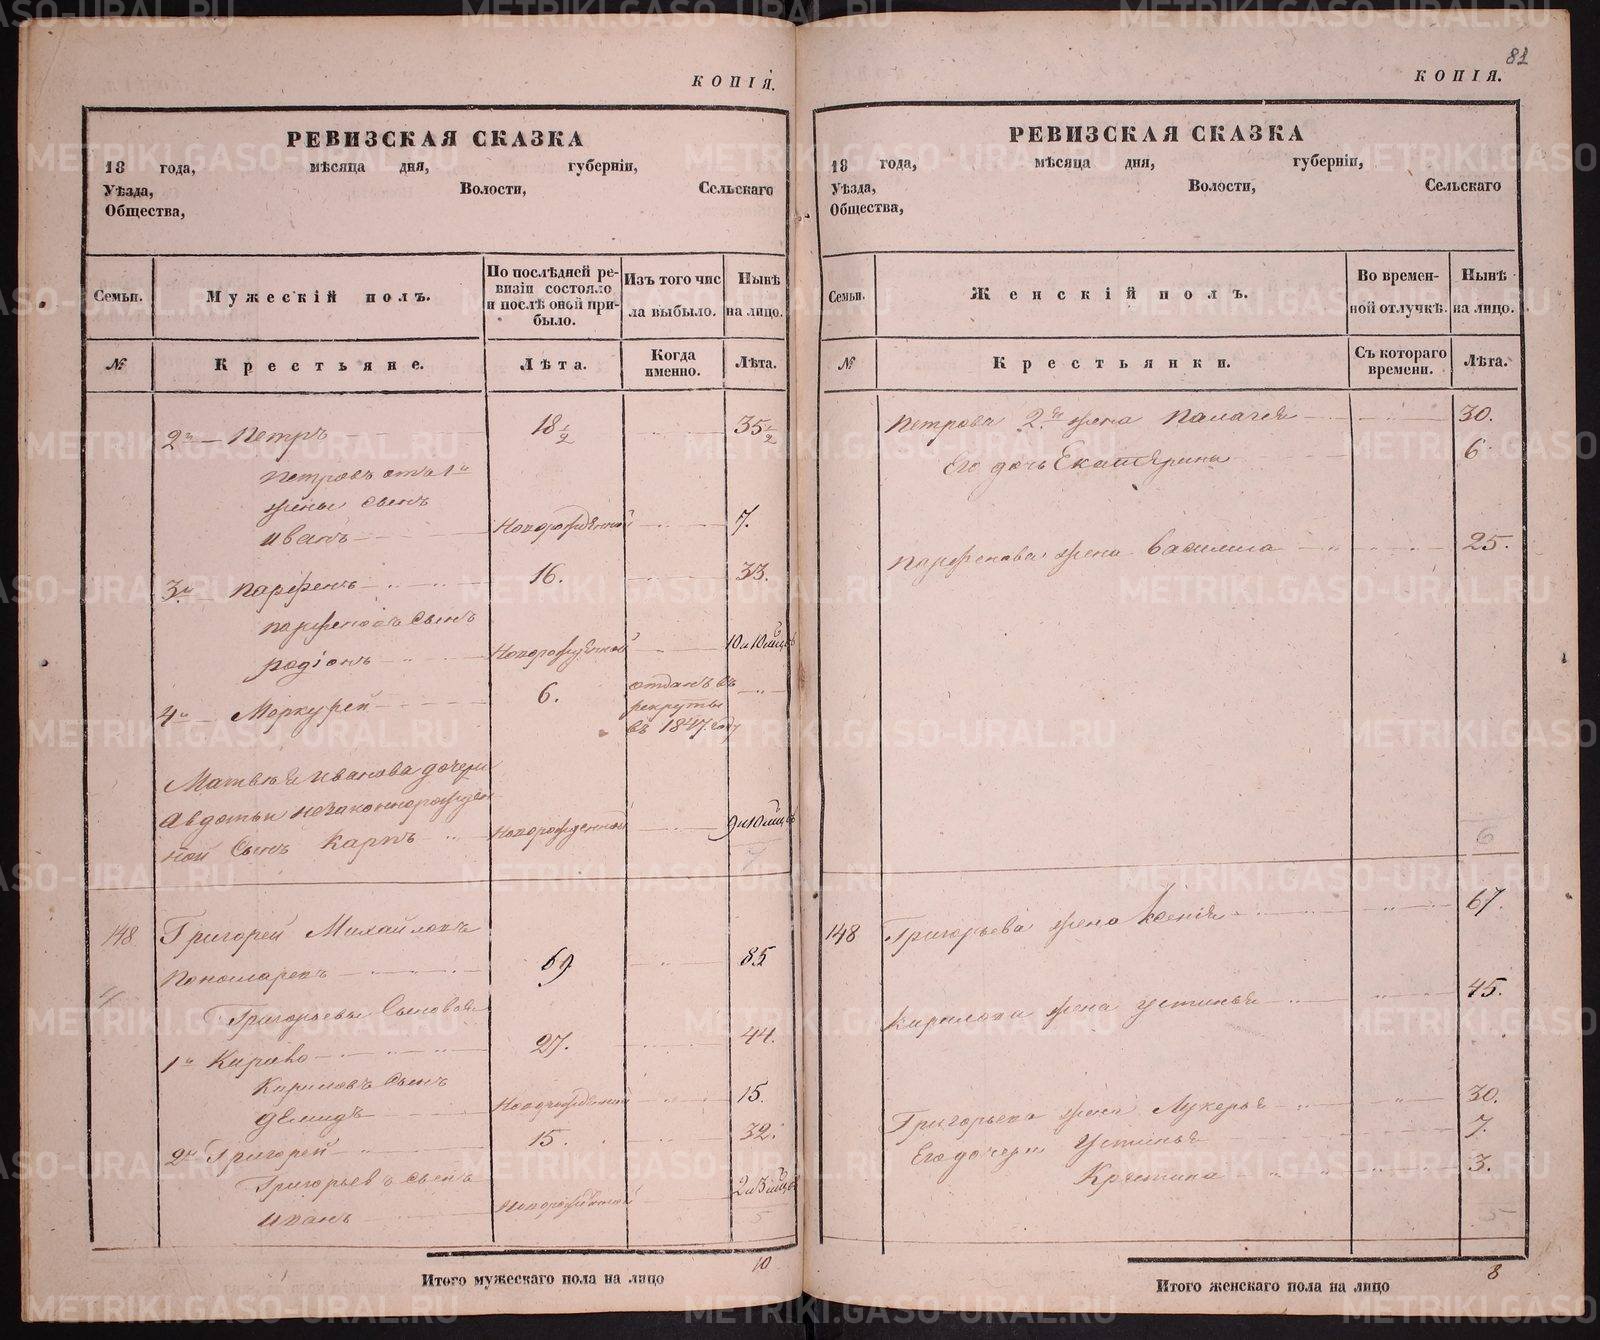 КОПІЯ.
РЕВИЗСКАЯ СКАЗКА
18 года, мѣсяца дня, губерніи,
Уѣзда, Волости, Сельскаго
Общества,
Семьи. Мужескій полъ. По послѣдней ревизіи состояло и послѣ оной прибыло. Изъ того числа выбыло. Нынѣ на лицо.
№ Крестьяне. Лѣта. Когда именно. Лѣта.
2й Петръ 18 1/2 35 1/2
Петровъ отъ 1й
жены сынъ
Иванъ Новорожденной 7.
3й Парфенъ 16. 33.
Парфеновъ сынъ
Родіонъ Новорожденной 10 и 10 мѣцовъ
4й Меркурей 6. отданъ въ
рекруты
въ 1847 году
Матвѣя Иванова дочери
Авдотьи незаконнорожден
ной сынъ Карпъ Новорожденной 9 и 10 мѣцовъ
7
148 Григорей Михайловъ
Пономаревъ 69 85
Григорьевы сыновья
1й Кирило 27. 44.
Кириловъ сынъ
Демидъ Новорожденной 15.
2й Григорей 15. 32.
Григорьевъ сынъ
Иванъ Новорожденной 2 и 3 мѣцовъ
5
Итого мужескаго пола на лицо 10
81
КОПІЯ.
РЕВИЗСКАЯ СКАЗКА
18 года, мѣсяца дня, губерніи,
Уѣзда, Волости, Сельскаго
Общества,
Семьи. Женскій полъ. Во временной отлучкѣ. Нынѣ на лицо.
№ Крестьянки. Съ котораго времени. Лѣта.
Петрова 2я жена Палагея 30.
Его дочь Екатерина 6
Парфенова жена Василиса 25.
6
148 Григорьева жена Ксенія 67.
Кирилова жена Устинья 45.
Григорьева жена Лукерья 30.
Его дочери Устинья 7.
Крестина 3.
5
Итого женскаго пола на лицо 8
METRIKI.GASO-URAL.RU